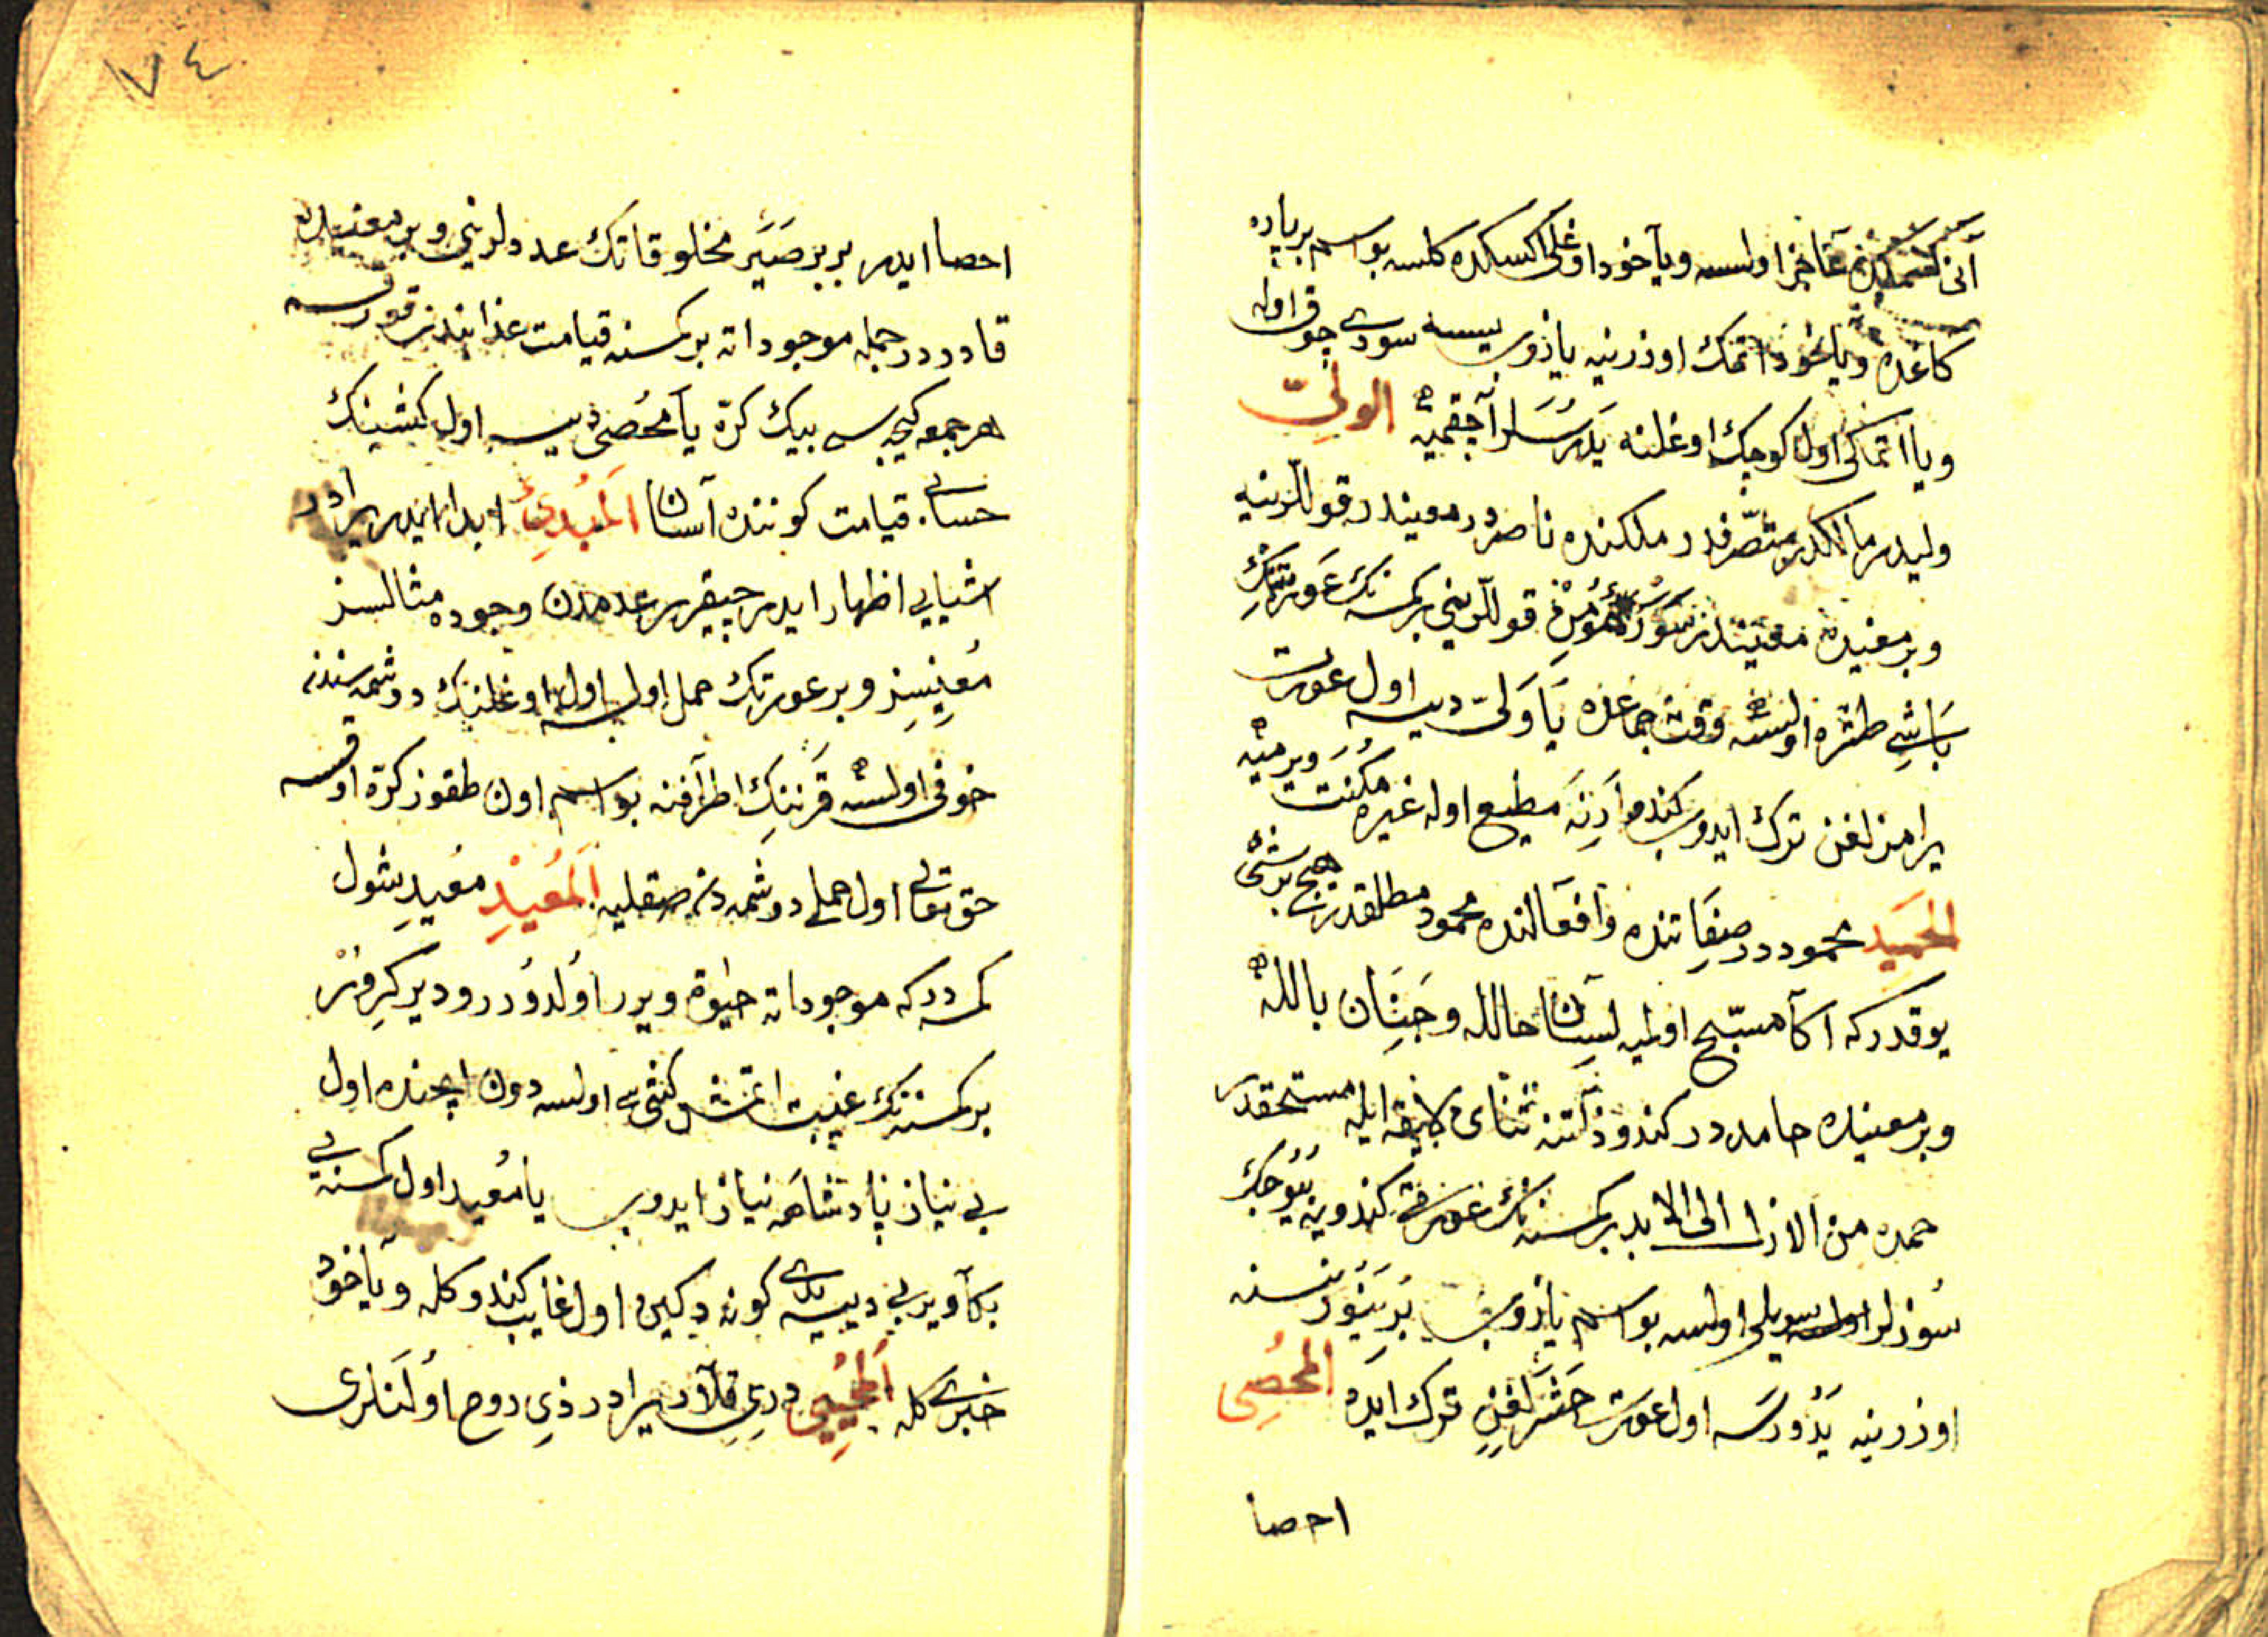 آنی کسمکدن عاجز اولسه ویآخود اوغلی اکسکده کلسه بو اسم بر پاره
کاغده ویاخود اتمک اوزرنیه یازوب ییسه سودی چوق اوله
ویا اتمکی اول کوچک اوغلنه یدرسلر آجقمیه الولیّ
ولیدر مالکدر متصرفدر ملکنده ناصردر معیندر قوللرینه
وبر معنیده معیندر سور مؤمن قوللرینی بر کمسنه نک عورتنک
باشی طشره اولسه وقت جماعده یا ولیّ دیسه اول عورت
یرامزلغن ترک ایدوب کندو ارنه مطیع اوله غیره مکنت ویرمیه
الحمید محموددر صفاتنده وافعالنده محمود مطلقدر هیچ بر شی
یوقدر که اکا مسبّح اولمیه لسان حاللە وجنان باللە
وبر معنیده حامددر کندو ذاتنه ثنای لایقه ایله مستحقدر
حمده من الازل الی الابد بر کمسنه نک عورتی کندوینه
سوزلر سویلر اولسه بو اسم یازوب بر نسنه
اوزرینه یدورسه اول عورت لغن ترک ایده المحصی
احصا
٧٤
احصا ایدر بر بر صیر مخلوقاتک عددلرینی وبر معنیده
قادردر جمله موجوداته بر کمسنه قیامت عذابندن قورقسه
هر جمعه کیجه سی بیک کرّه یا محصی دیسه اول کشینک
حسابی قیامت کوننده آسان المبدئ ابدا ایدر یرادر
اشیایی اظهار ایدر چیقرر عدمدن وجوده مثالسز
معینسز وبر عورتک حمل اولسه اول اوغلنک دوشمه سندن
خوفی اولسه قرننک اطرافنه بو اسم اون طقوز کرّه اوقسه
حق تعالی اول حملی دوشمه دن صقلیه المعید معید شول
کمسه درکه موجوداته حیوة ویرر اولدورر ودیرکرور
بر کمسنه نک غیبت اتمش کشی سی اولسه دون ایچنده اول
بی نیاز پادشاهه نیاز ایدوب یا معید اول کمسنه یی
بکا ویر دییه یدی کونه دکین اول غایب کندو کله ویاخود
خبری کله المحیی دری قلار یرادر ذی روح اولنلری